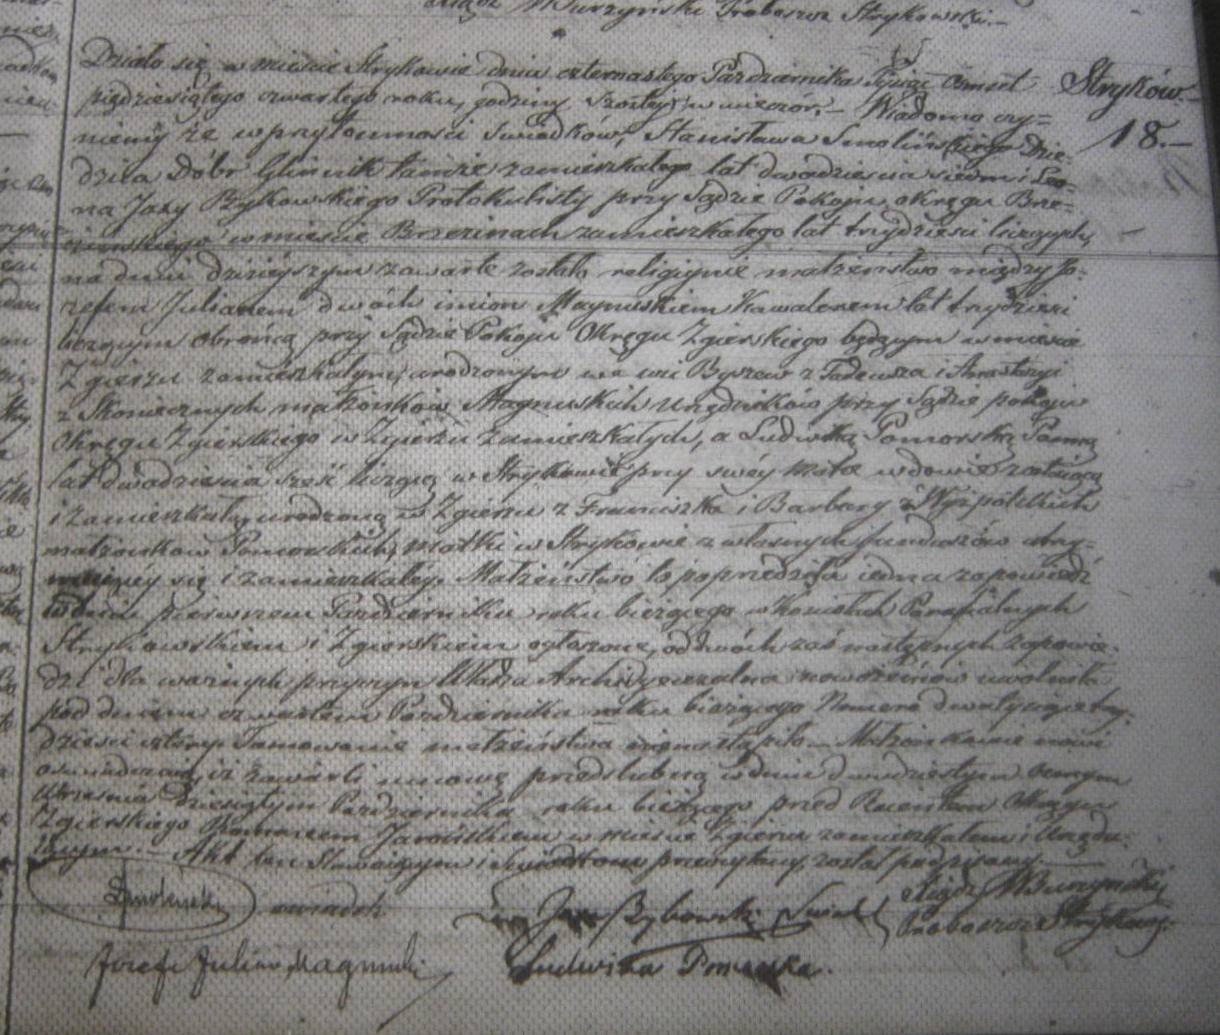 Wurzyński Proboszcz Strykowski.—
Stryków.—
18.—
Działo się w mieście Strykowie dnia czternastego Października Tysiąc ośmset
pięćdziesiątego czwartego roku, godziny szóstej w wieczór.— Wiadomo czy=
niemy że w przytomności świadków, Stanisława Smolińskiego Dzie=
dzica Dóbr Glinnik tamże zamieszkałego lat dwadzieścia siedm i Leo=
na Jaxy Bykowskiego Protokulisty przy Sądzie Pokoju okręgu Brze=
zinskiego w mieście Brzezinach zamieszkałego lat trzydzieści liczących,
na dniu dzisiejszym zawarte zostało religijne małżeństwo między Jó=
zefem Julianem dwóch imion Magnuskiem Kawalerem lat trzydzieści
liczącym obrońcą przy Sądzie Pokoju Okręgu Zgierskiego będącym w mieście
Zgierzu zamieszkałym, urodzonym we wsi Byszew z Tadeusza i Anastazyi
z Skoniecznych małżonków Magnuskich Urzędników przy Sądzie pokoju
Okręgu Zgierskiego w Zgierzu zamieszkałych, a Ludwiką Pomorską Panną
lat dwadzieścia sześć liczącą w Strykowie przy swéy Matce wdowie zostającą
i zamieszkałą, urodzoną w Zgierzu z Franciszka i Barbary z
małżonków Pomorskich, Matki w Strykowie z własnych funduszów utrzy=
mującéy się i zamieszkałéy. Małżeństwo to poprzedziła jedna zapowiedź
w dniu pierwszem Października roku bieżącego w Kościołach Parafialnych
Strykowskiem i Zgierskiem ogłoszona, od dwóch zaś następnych zapowie=
dzi dla ważnych przyczyn Władza Archidyecezalna nowożeńców uwolniła
pod dniem czwartem Października roku bieżącego Numero dwa tysiące trzy=
dzieści cztery. Tamowanie małżeństwa nie nastąpiło.— Małżonkowie nowi
oświadczają, iż zawarli umowę przedślubną w dniu dwudziestym ósmym
Września dziesiątym Października roku bieżącego przed Rejentem Okręgu
Zgierskiego w mieście Zgierzu zamieszkałem i Urzędu=
jącym.— Akt ten Stawającym i Świadkom przeczytany, został podpisany.—
Smoliński świadek
Leon Jaxa Bykowski Świadek
Xiądz Wurzyński
Proboszcz Strykowski
Józef Julian Magnuski
Ludwika Pomorska.